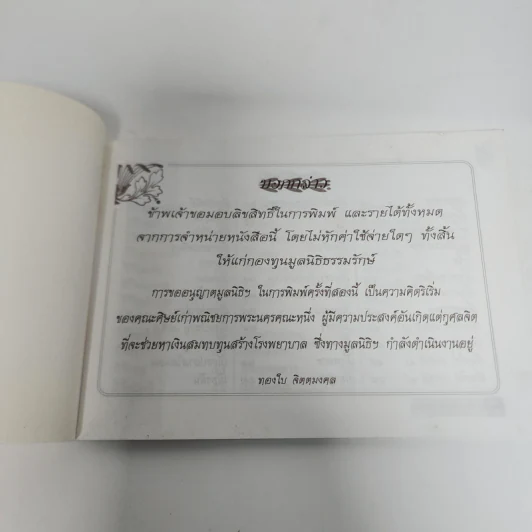 ขอกล่าว
ข้าพเจ้าขอมอบลิขสิทธิ์ในการพิมพ์ และรายได้ทั้งหมด
จากการจำหน่ายหนังสือนี้ โดยไม่หักค่าใช้จ่ายใดๆ ทั้งสิ้น
ให้แก่กองทุนมูลนิธิธรรมรักษ์
การขออนุญาตมูลนิธิฯ ในการพิมพ์ครั้งที่สองนี้ เป็นความคิดริเริ่ม
ของคณะศิษย์เก่าพณิชยการพระนครคณะหนึ่ง ผู้มีความประสงค์อันเกิดแต่กุศลจิต
ที่จะช่วยหาเงินสมทบทุนสร้างโรงพยาบาล ซึ่งทางมูลนิธิฯ กำลังดำเนินงานอยู่
ทองใบ จิตตมงคล